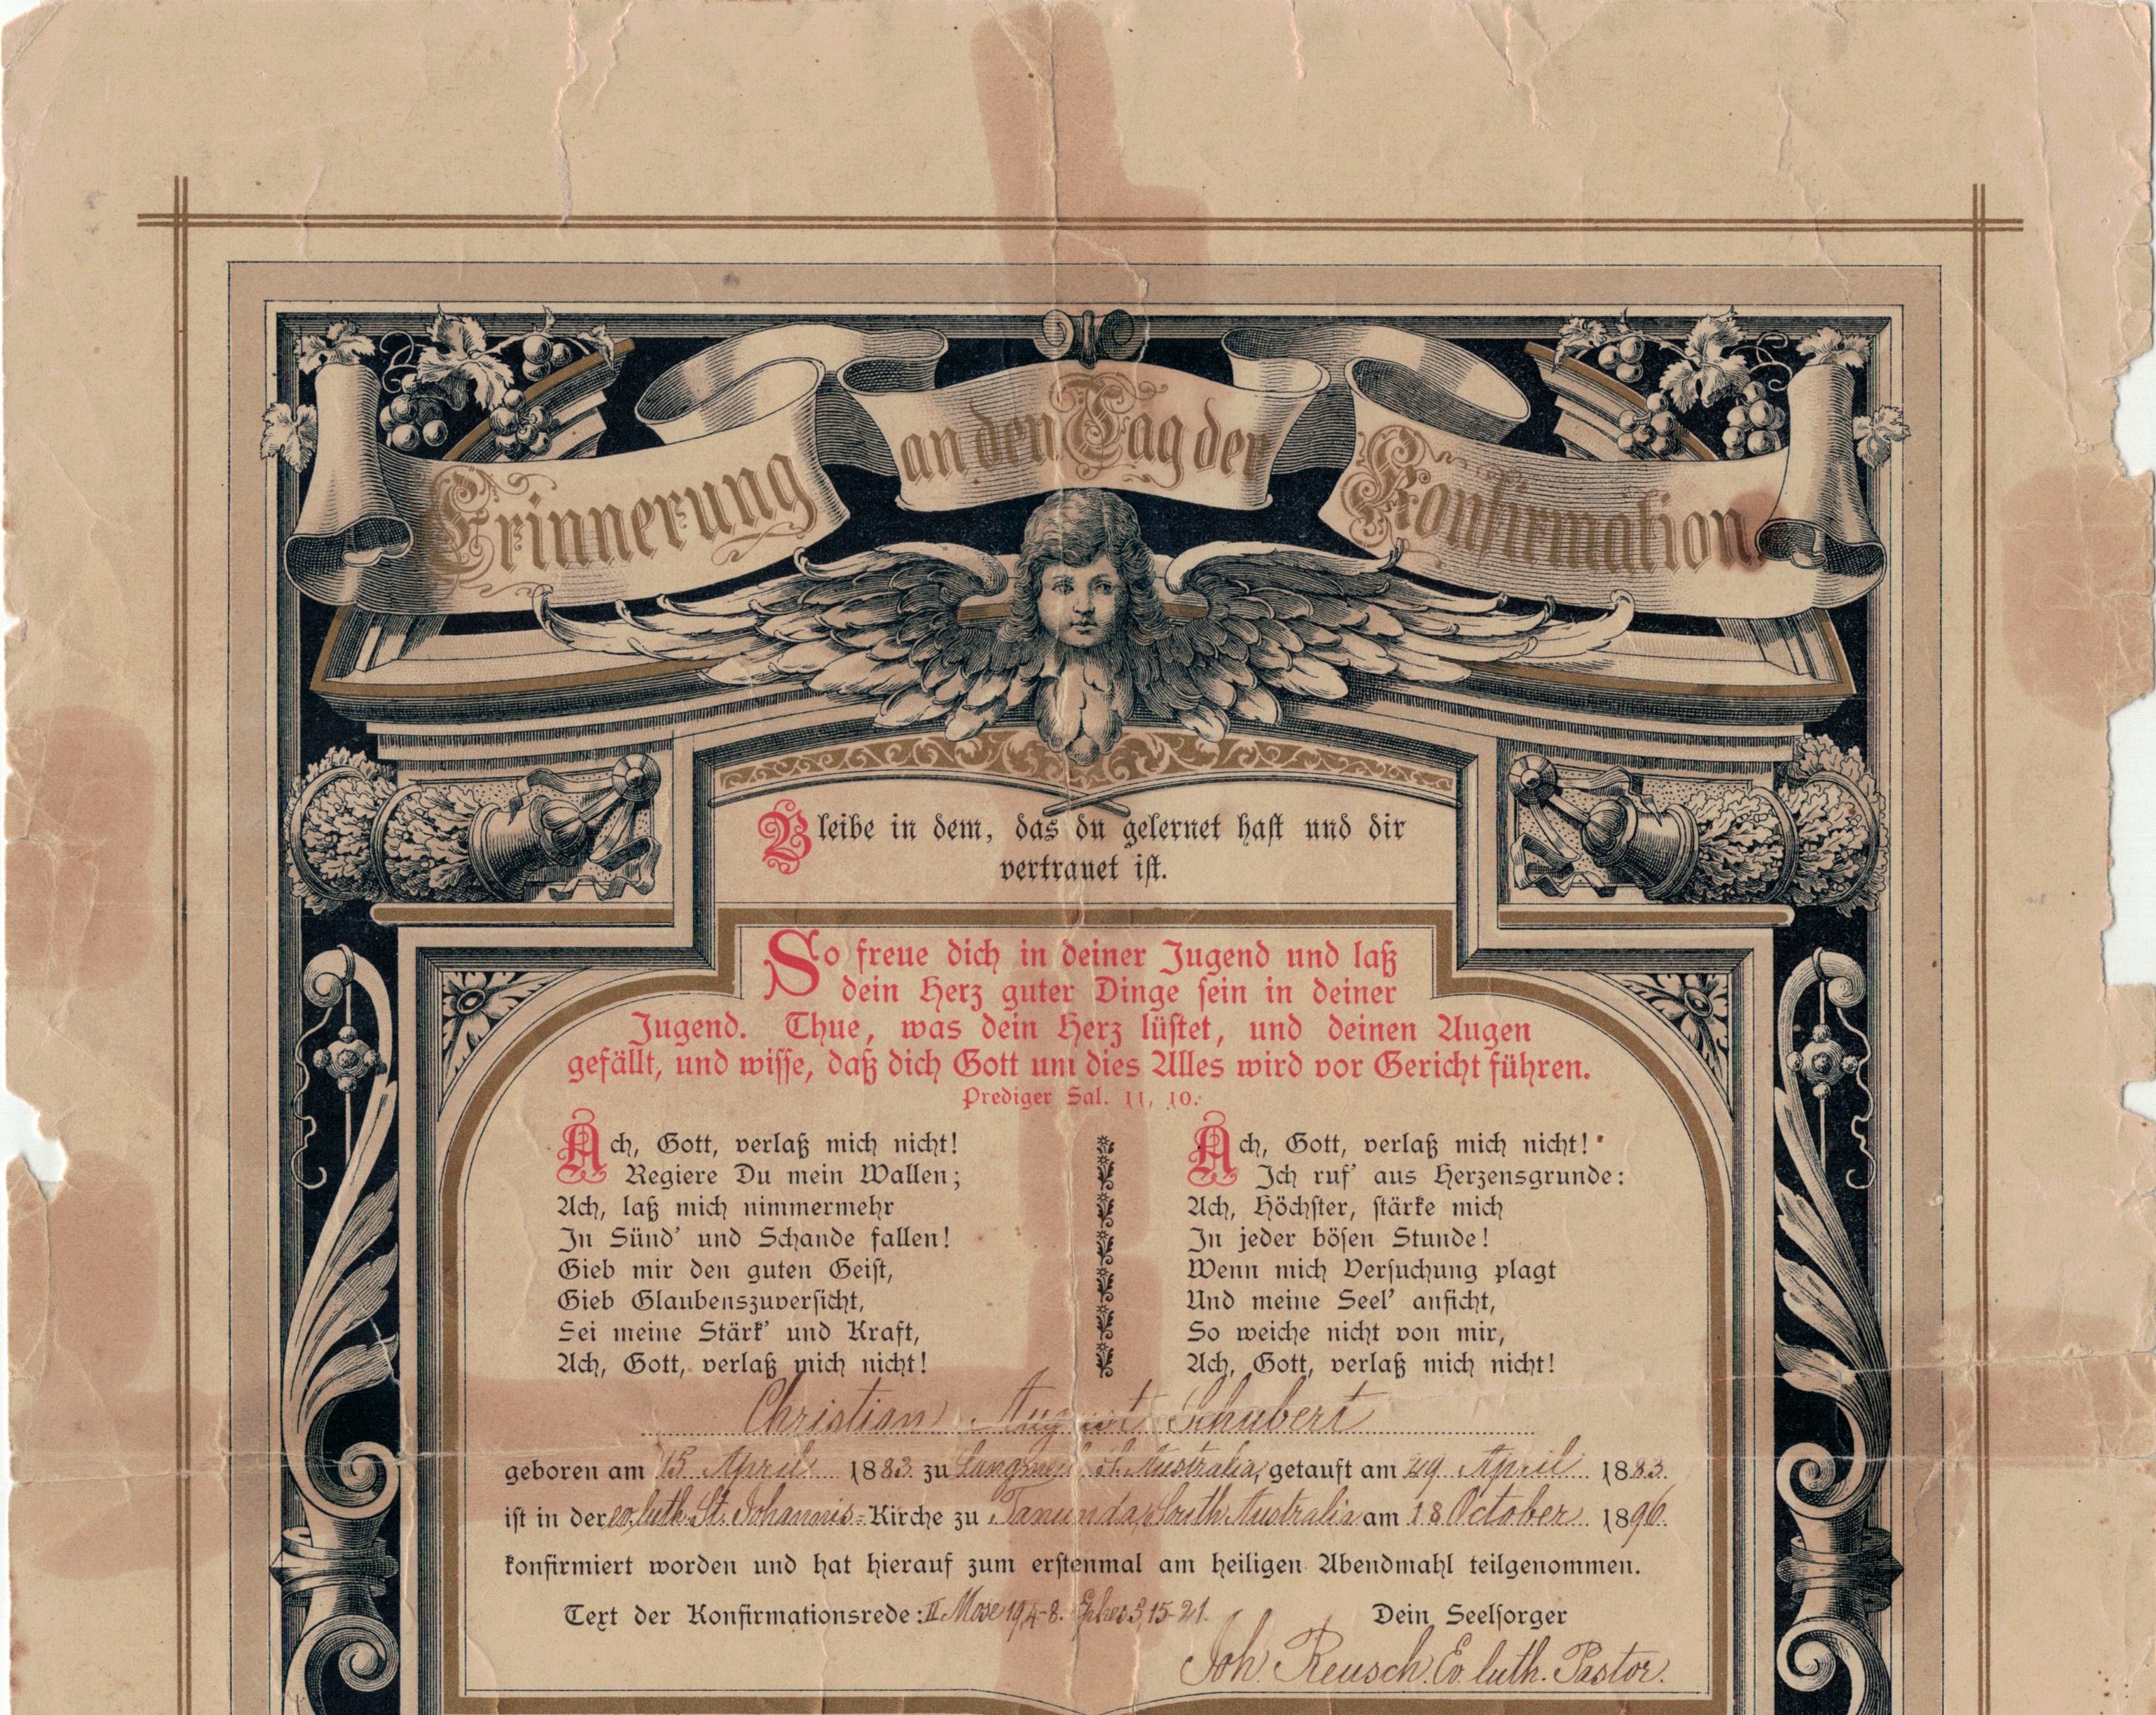 Erinnerung an den Tag der Konfirmation.
Bleibe in dem, das du gelernet hast und dir
vertrauet ist.
So freue dich in deiner Jugend und laß
dein Herz guter Dinge sein in deiner
Jugend. Thue, was dein Herz lüstet, und deinen Augen
gefällt, und wisse, daß dich Gott um dies Alles wird vor Gericht führen.
Prediger Sal. 11, 10.
Ach, Gott, verlaß mich nicht!
Regiere Du mein Wallen;
Ach, laß mich nimmermehr
In Sünd' und Schande fallen!
Gieb mir den guten Geist,
Gieb Glaubenszuversicht,
Sei meine Stärk' und Kraft,
Ach, Gott, verlaß mich nicht!
Ach, Gott, verlaß mich nicht!
Ich ruf' aus Herzensgrunde:
Ach, Höchster, stärke mich
In jeder bösen Stunde!
Wenn mich Versuchung plagt
Und meine Seel' anficht,
So weiche nicht von mir,
Ach, Gott, verlaß mich nicht!
Christian August Schubert
geboren am 15 April 1883. zu Australia, getauft am 29 April 1883.
ist in der ev. luth. St. Johannis-Kirche zu Tanunda, South Australia am 18 October 1896.
konfirmiert worden und hat hierauf zum erstenmal am heiligen Abendmahl teilgenommen.
Text der Konfirmationsrede: II Mose 19,4-8. Ephes 3,15-21.
Dein Seelsorger
Joh. Reusch. Ev. luth. Pastor.